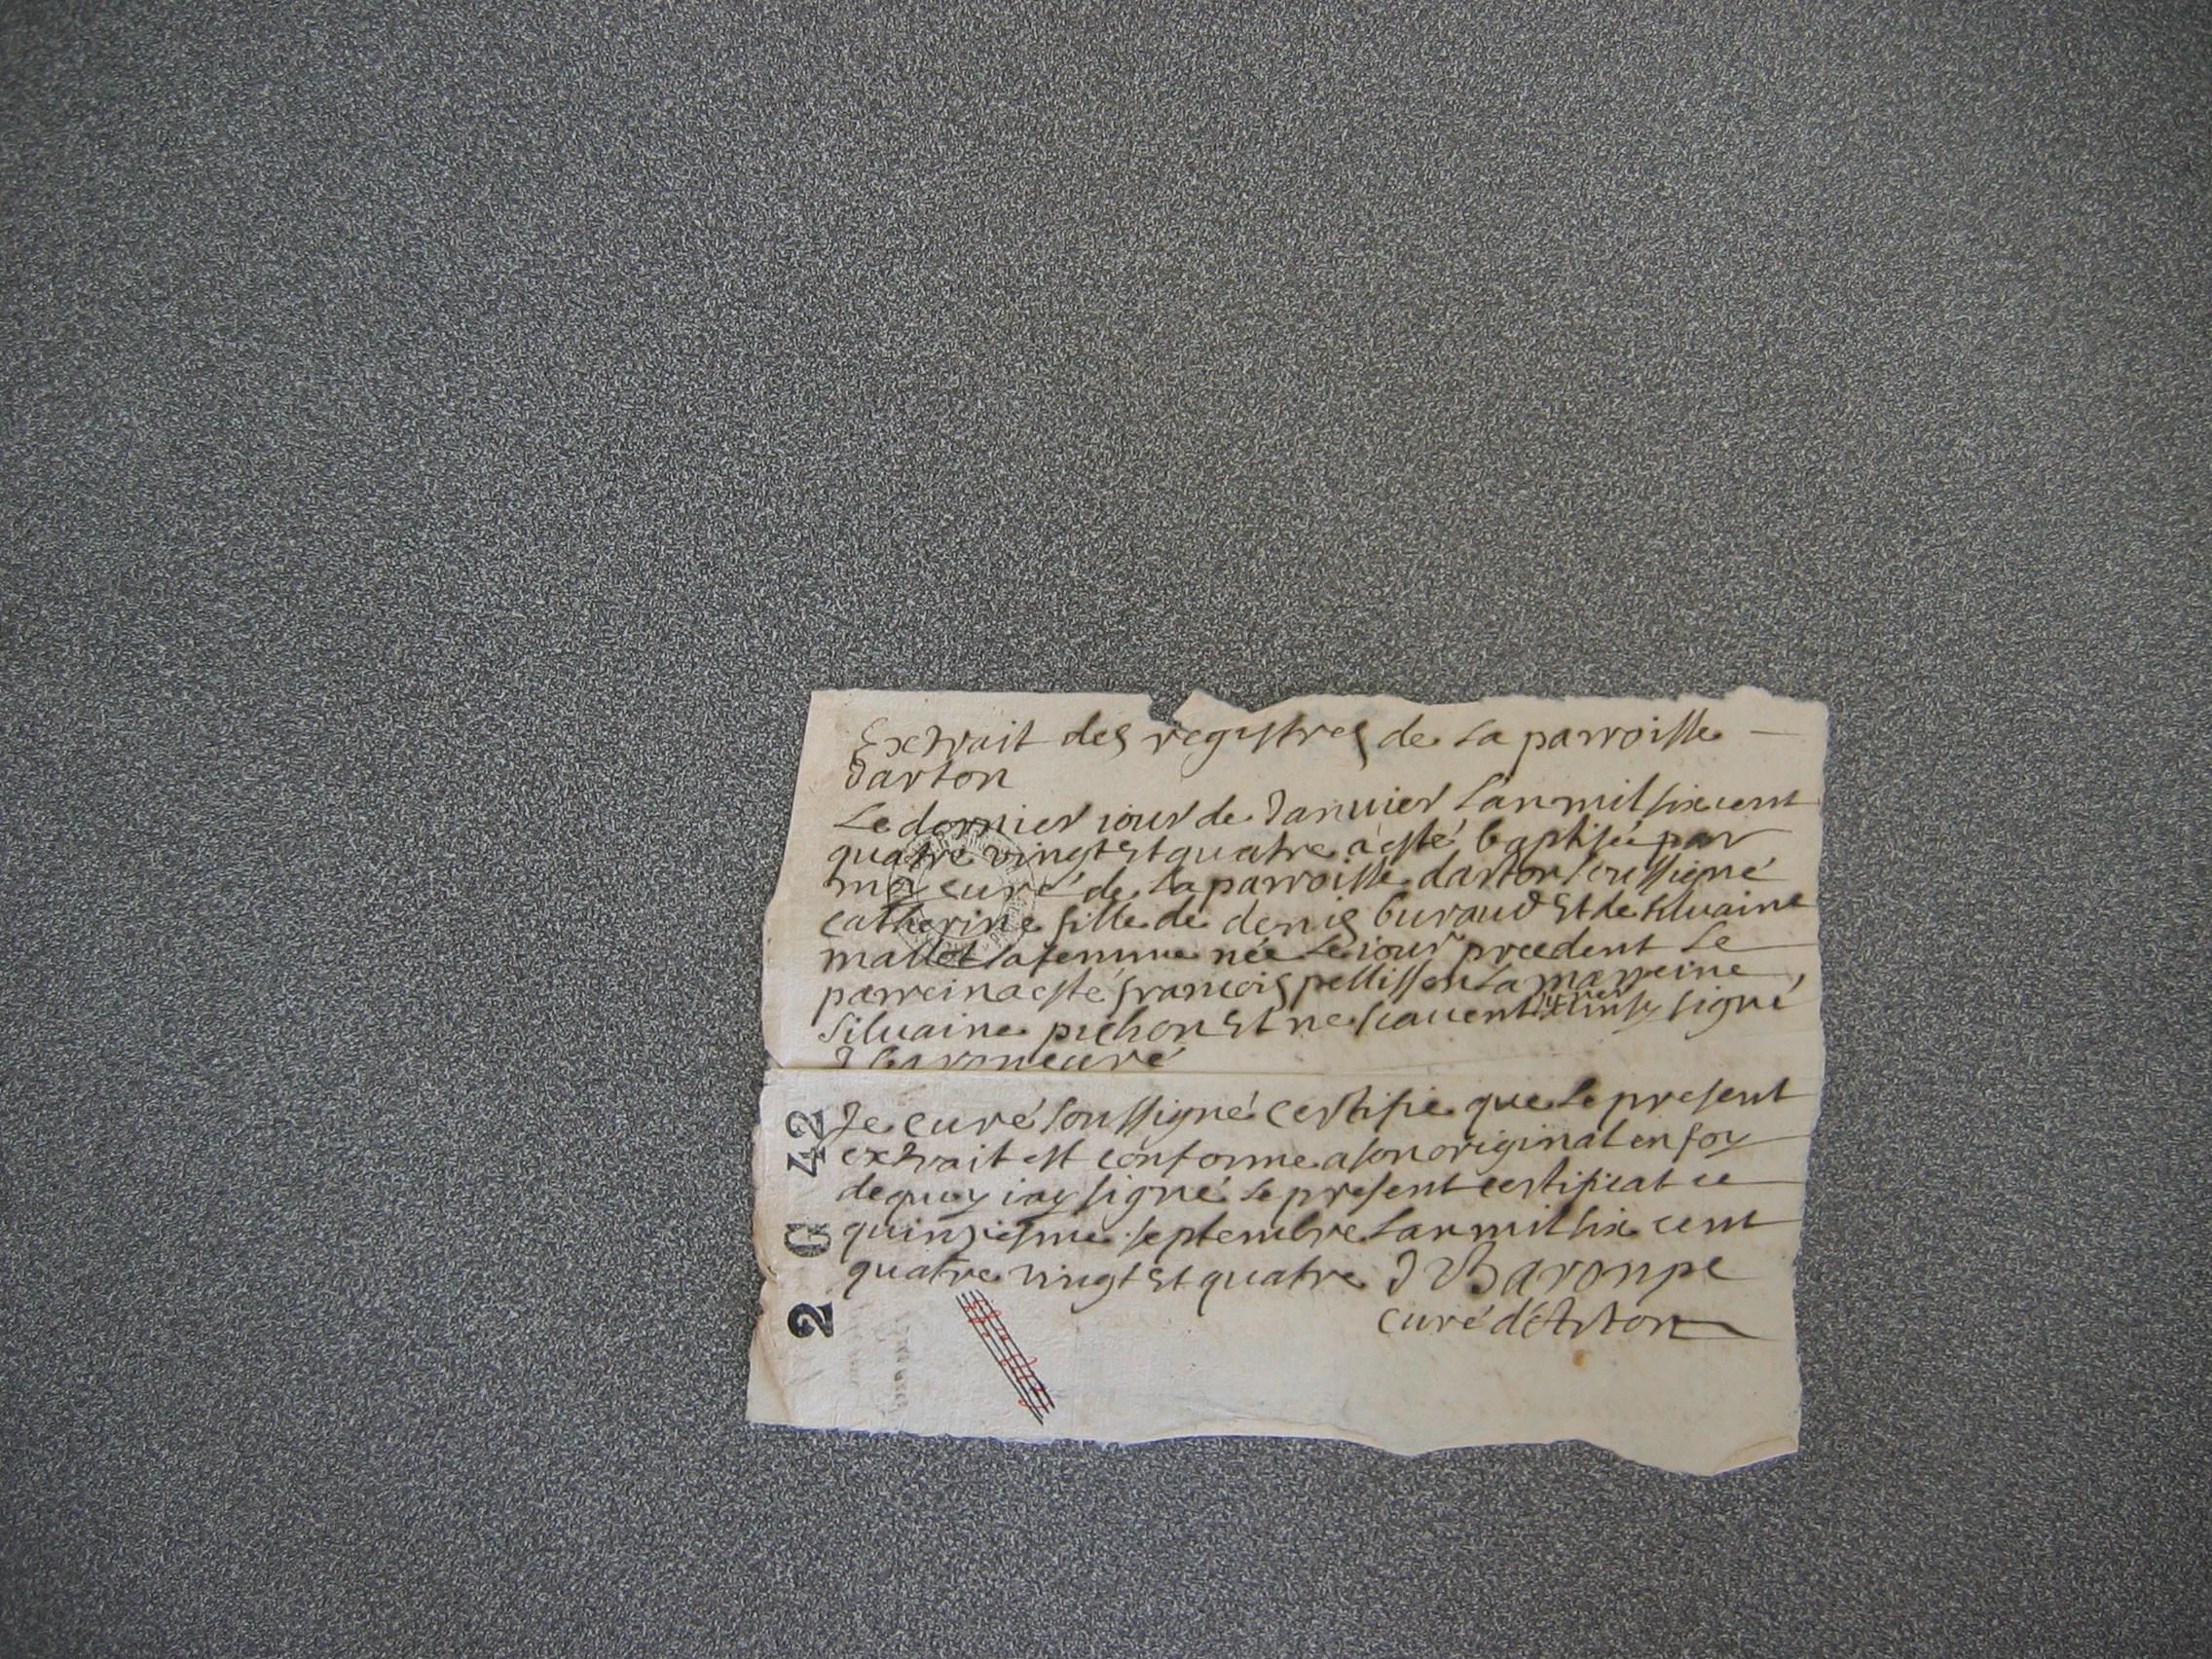 Extrait des registres de la parroisse
darton
Le dernier iour de Januier lan mil six cent
quatre vingt et quatre a esté baptisée par
moy curé de la parroisse darton soussigné
catherine fille de denis buraud et de siluaine
mallet sa femme née le iour precedent le
parrein a esté francois pellisson la marreine
siluaine pichon et ne scauent signer signé
J baronpe curé
Je curé soussigné certifie que le present
extrait est conforme a son original en foy
de quoy iay signé le present certificat ce
quinziesme septembre lan mil six cent
quatre vingt et quatre J Baronpe
curé d'Arton
2 G 42